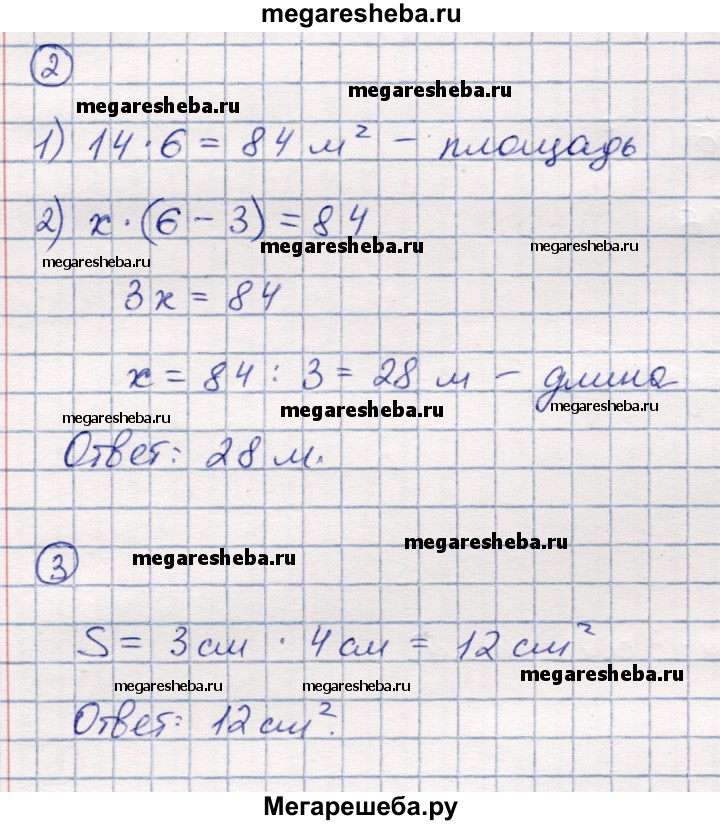 megaresheba.ru
2
megaresheba.ru
megaresheba.ru
1) 14 · 6 = 84 м² – площадь
2) x · (6 – 3) = 84
megaresheba.ru
megaresheba.ru
megaresheba.ru
3x = 84
x = 84 : 3 = 28 м – длина
megaresheba.ru
megaresheba.ru
megaresheba.ru
Ответ: 28 м.
3
megaresheba.ru
megaresheba.ru
S = 3 см · 4 см = 12 см²
megaresheba.ru
megaresheba.ru
megaresheba.ru
Ответ: 12 см².
Мегарешеба.ру